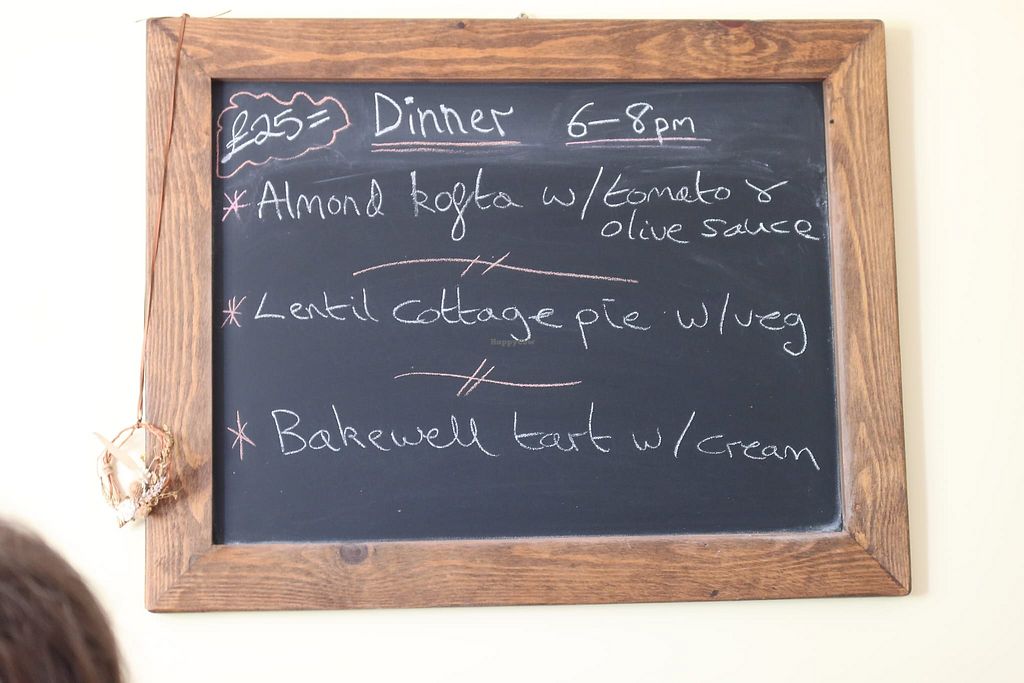 £25= Dinner 6-8pm
* Almond kofta w/tomato &
olive sauce
* Lentil cottage pie w/veg
HappyCow
* Bakewell tart w/cream